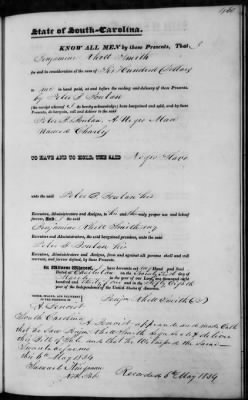 State of South-Carolina.
KNOW ALL MEN by these Presents, That I
Benjamin Rhett Smith
for and in consideration of the sum of Six Hundred Dollars
to me in hand paid, at and before the sealing and delivery of these Presents,
by Peter S.
(the receipt whereof I do hereby acknowledge) have bargained and sold, and by these
Presents, do bargain, sell, and deliver to the said
Peter S. A Negro Man
Named Charley
TO HAVE AND TO HOLD, THE SAID Negro Slave
unto the said Peter S. his
Executors, Administrators and Assigns, to his and their only proper use and behoof
forever. And I the said
Benjamin Rhett Smith my
Executors and Administrators, the said bargained premises, unto the said
Peter S. his
Executors, Administrators and Assigns, from and against all persons shall and will
warrant, and forever defend, by these Presents.
In Witness Whereof, I have hereunto set my Hand and Seal
Dated at Charleston on the day of
in the year of our Lord one thousand eight
hundred and thirty four and in the fifty eighth
year of the Independence of the United States of America.
SIGNED, SEALED, AND DELIVERED
IN THE PRESENCE OF
Benja Rhett Smith
South Carolina
appeared and made Oath
that he Saw Benja Rhett Smith sign seal & deliver
this Bill of Sale and that he Witnessed the same
Sworn to before me
this 6th May 1834
Recorded 6th May 1834